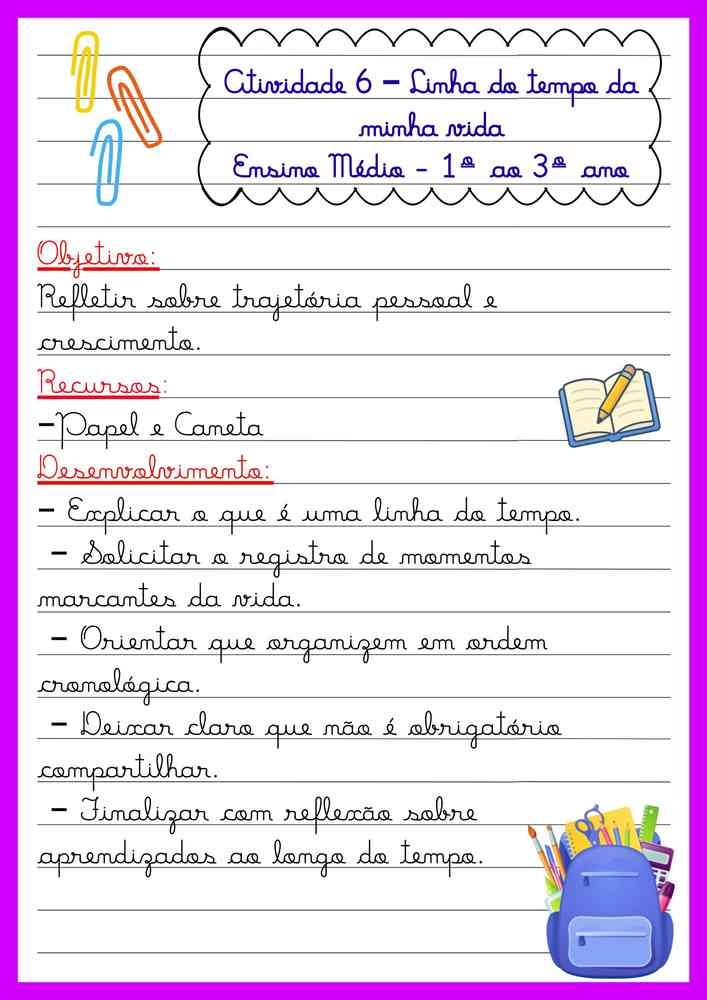 Atividade 6 – Linha do tempo da
minha vida
Ensino Médio - 1º ao 3º ano
Objetivo:
Refletir sobre trajetória pessoal e
crescimento.
Recursos:
-Papel e Caneta
Desenvolvimento:
- Explicar o que é uma linha do tempo.
- Solicitar o registro de momentos
marcantes da vida.
- Orientar que organizem em ordem
cronológica.
- Deixar claro que não é obrigatório
compartilhar.
- Finalizar com reflexão sobre
aprendizados ao longo do tempo.